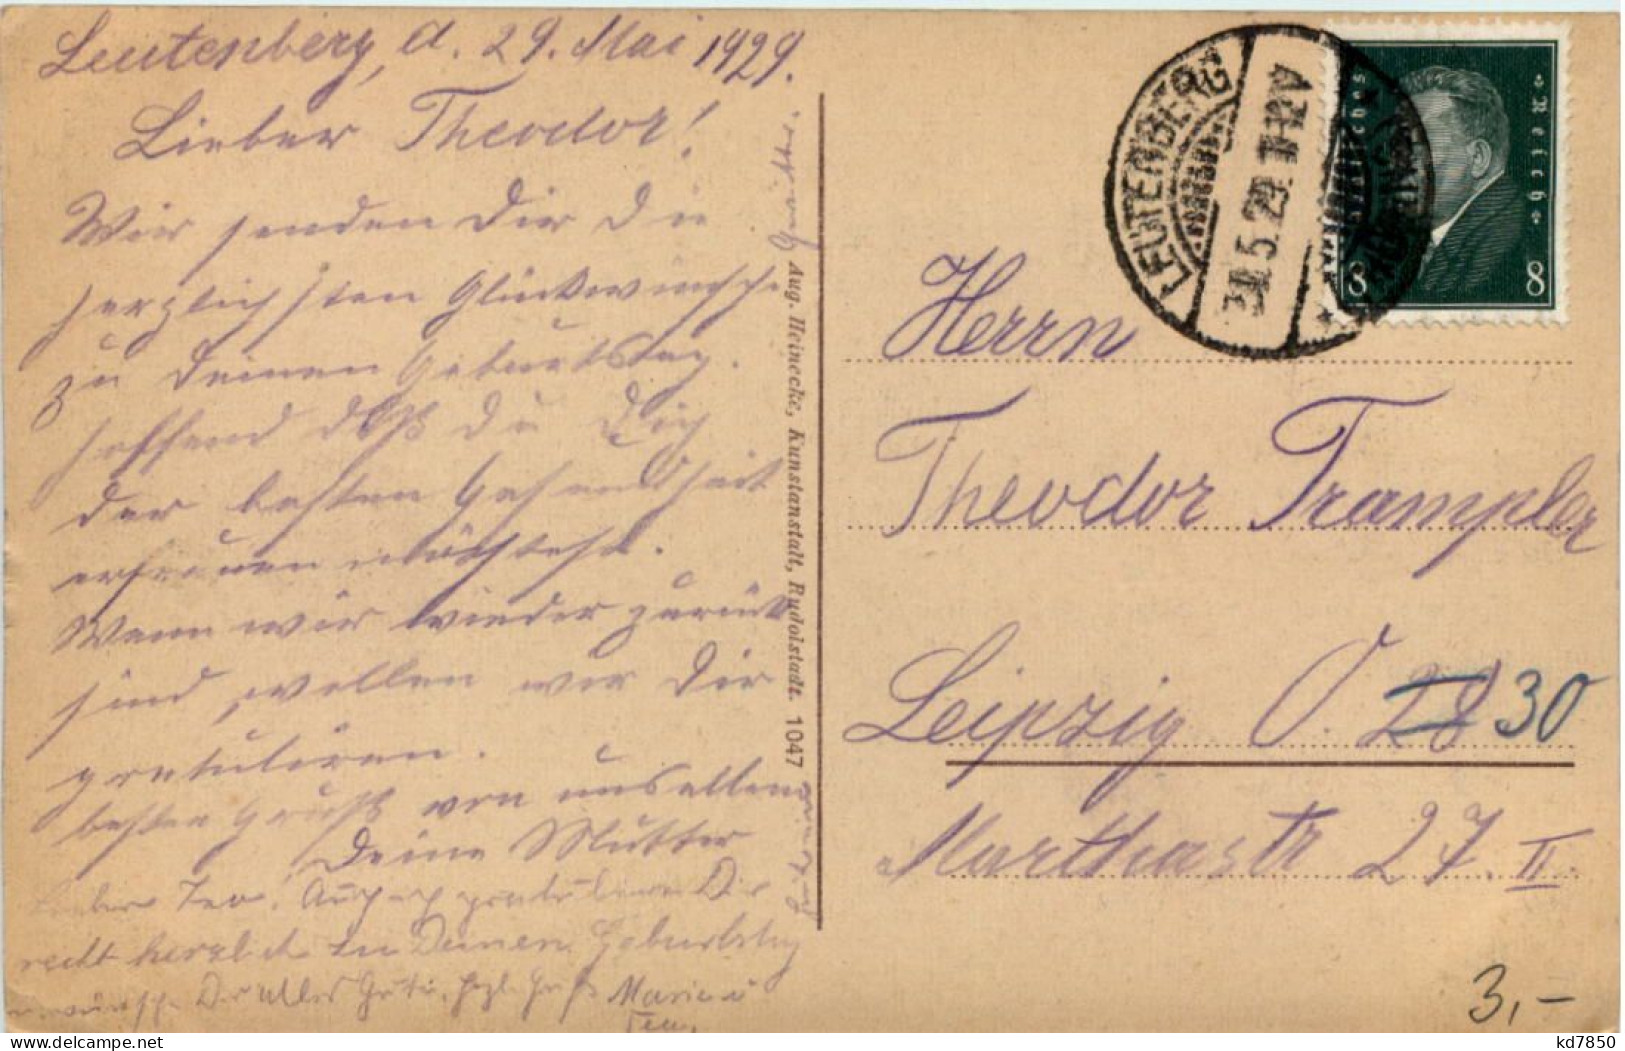 Leutenberg, d. 29. Mai 1929.
Lieber Theodor!
Wir senden Dir die
herzlichsten Glückwünsche
zu Deinem Geburtstag.
hoffend daß du Dich
der besten Gesundheit
erfreuen möchtest.
Wenn wir wieder zurück
sind, wollen wir Dir
gratulieren.
besten Gruß von uns allen
Deine Mutter
Lieber Teo! Auch ich gratuliere Dir
recht herzlich zu Deinem Geburtstag
u. wünsche Dir alles Gute. Herzl. Gruß Marie u
Aug. Heinecke, Kunstanstalt, Rudolstadt. 1047
LEUTENBERG
30.5.29. 11-12V
Reich
8 8
Herrn
Theodor Trampler
Leipzig O. 28 30
Marthastr 27. II.
3,-
kd7850